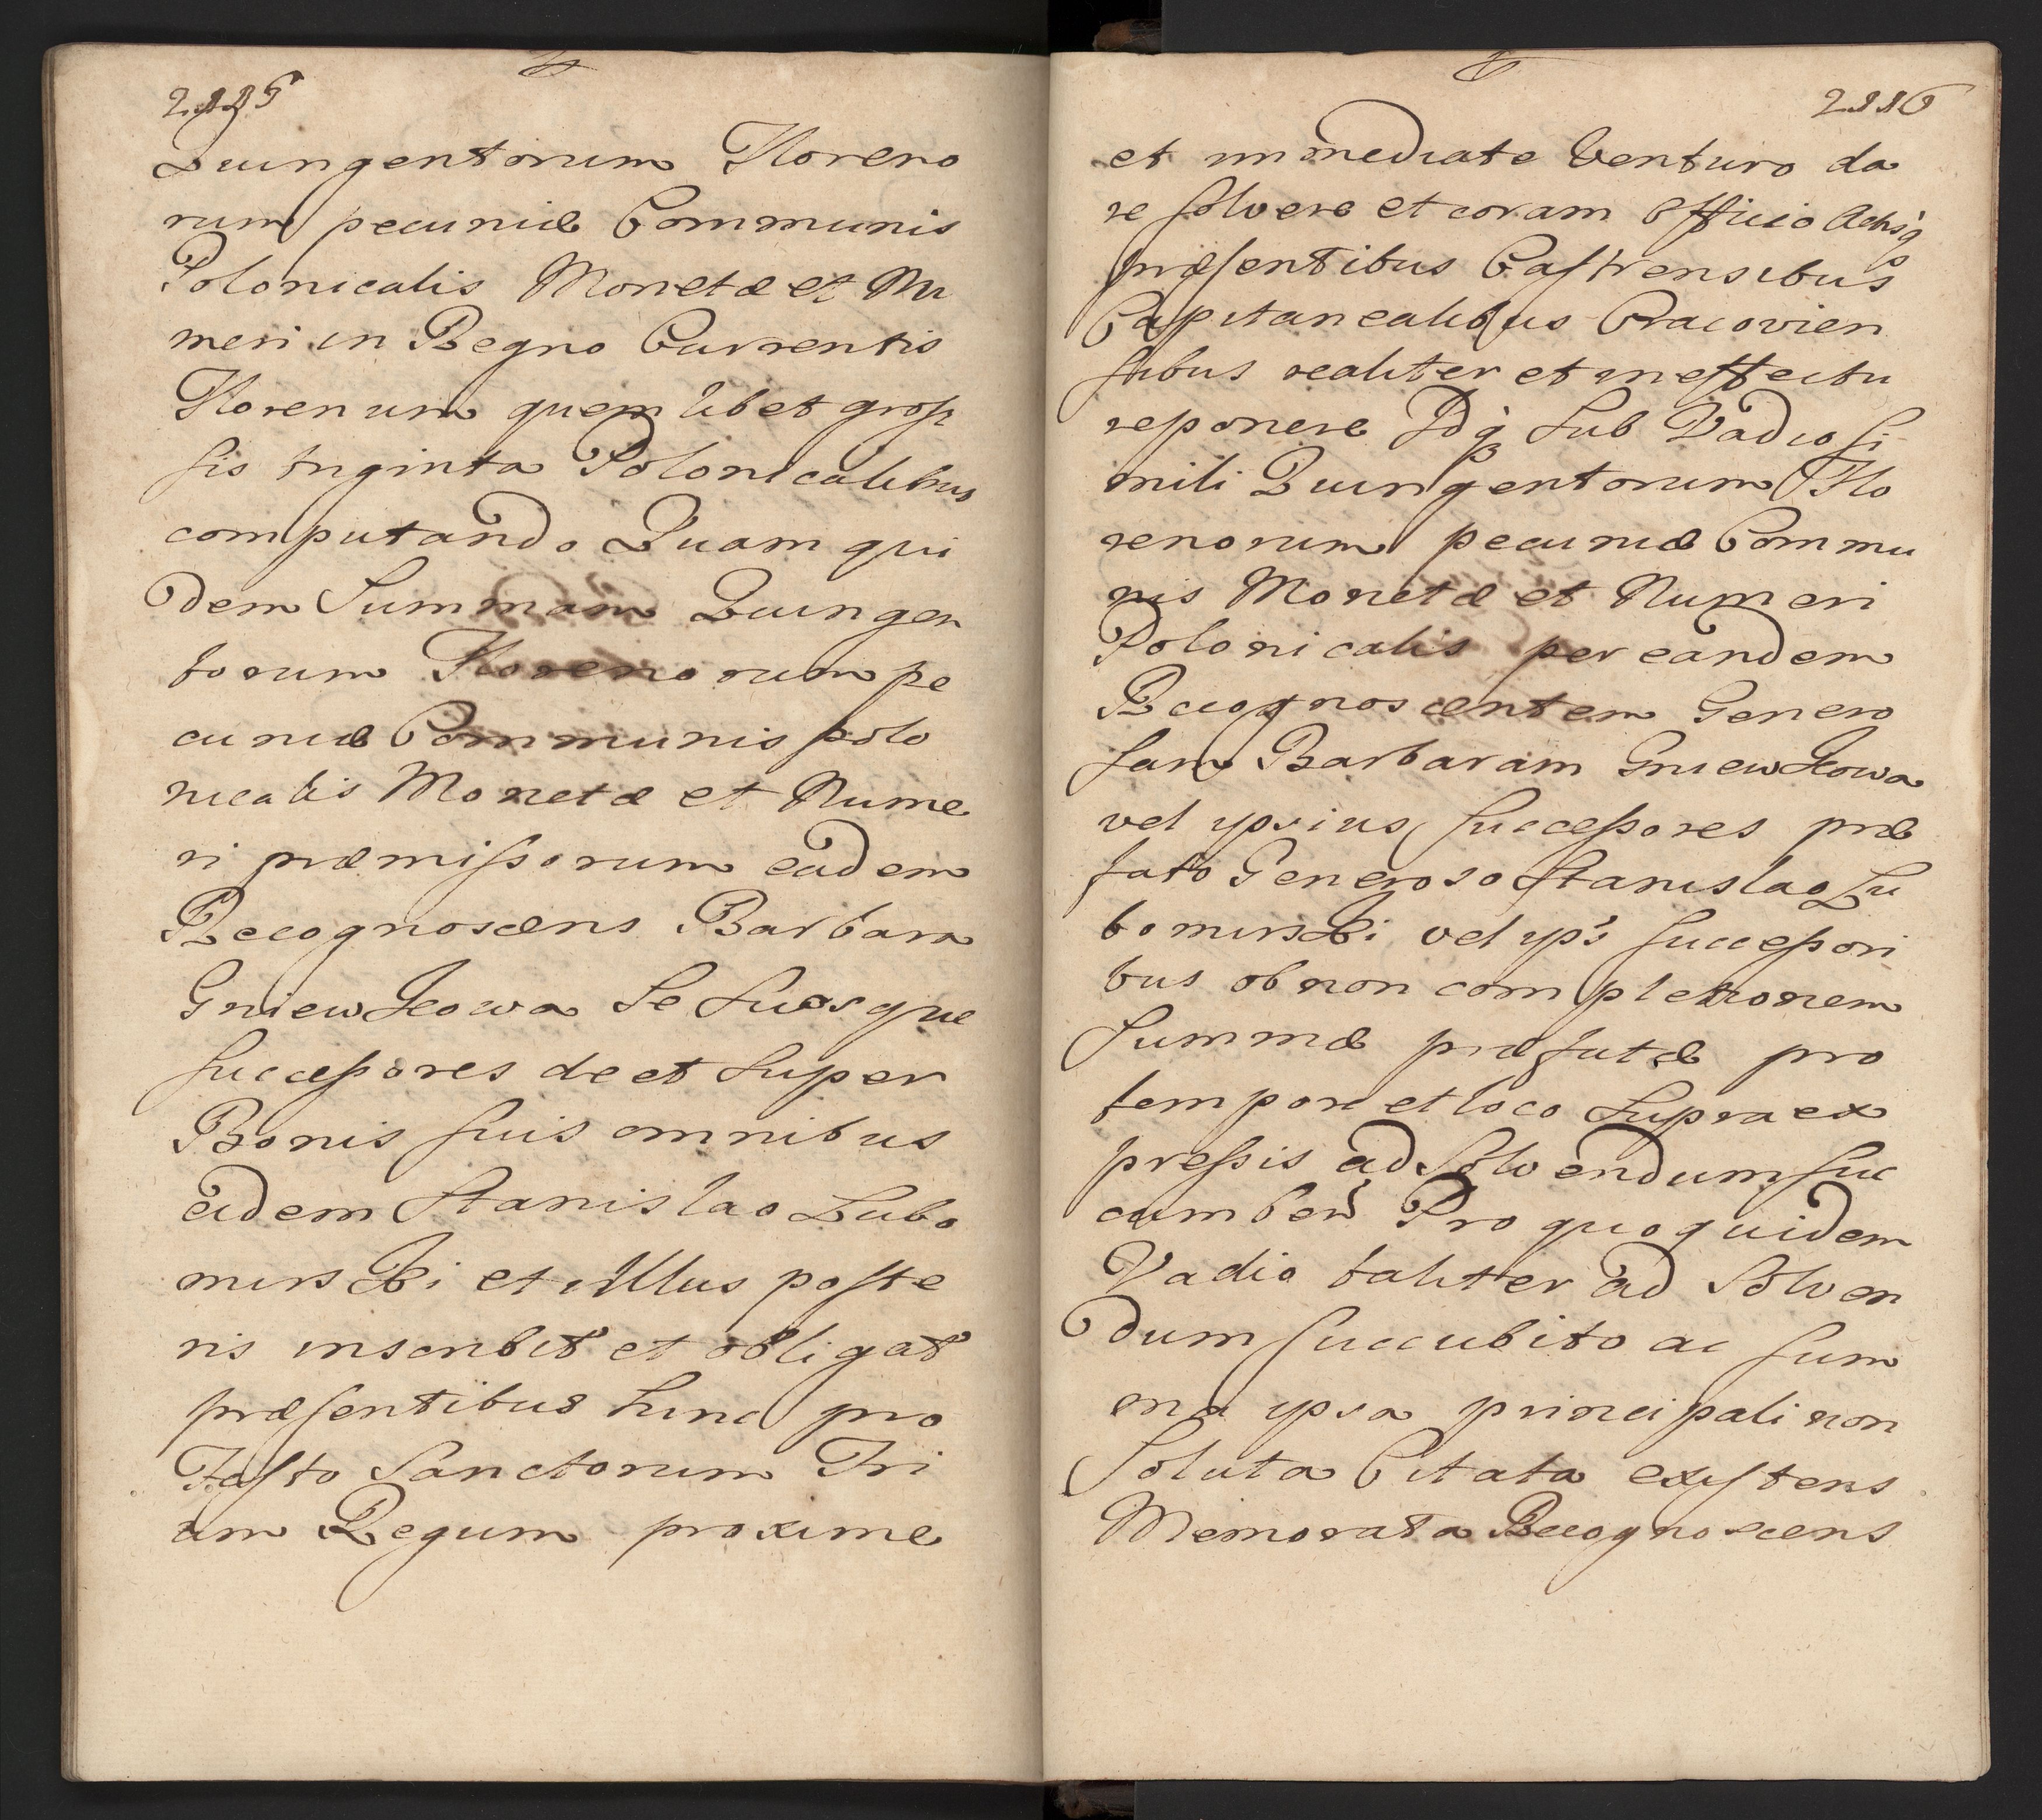 2115
Quingentorum Floreno
rum pecuniæ Communis
Polonicalis Monetæ et Nu
meri in Regno Currentis
Florenum quemlibet gros
sis triginta Polonicalibus
computando Quam qui
dem Summam Quingen
torum Florenorum pe
cuniæ Communis polo
nicalis Monetæ et Nume
ri præmissorum eadem
Recognoscens Barbara
Gniewkowa Se Suosque
successores de et super
Bonis suis omnibus
eidem Stanislao Lubo
mirski et illius poste
ris inscribit et obligat
præsentibus hinc pro
Festo Sanctorum Tri
um Regum proxime
2116
et immediate Venturo da
re solvere et coram Officio Actisq
præsentibus Castrensibus
Capitanealibus Cracovien
sibus realiter et in effectu
reponere Idq Sub Vadio si
mili Quingentorum Flo
renorum pecuniæ Commu
nis Monetæ et Numeri
Polonicalis per eandem
Recognoscentem Genero
sam Barbaram Gniewkowa
vel ipsius successores præ
fato Generoso Stanislao Lu
bomirski vel ips successori
bus ob non completionem
Summæ præfatæ pro
tempore et loco Supra ex
pressis ad Solvendum suc
cumben Pro quoquidem
Vadio taliter ad Solven
dum succubito ac sum
ma ipsa principali non
Soluta Citata existens
Memorata Recognoscens